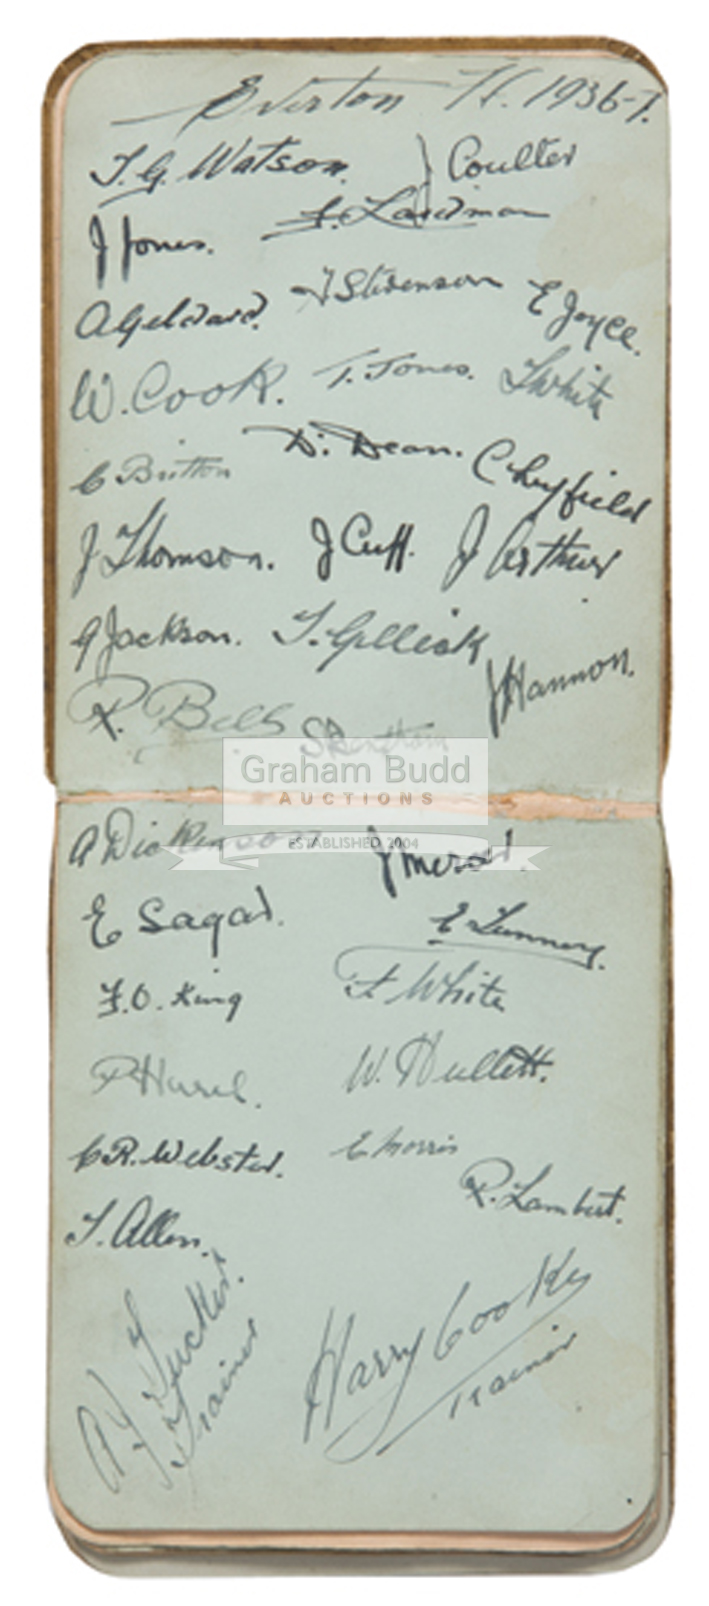 Everton F.C. 1936-7.
T.G. Watson. J Coulter
J Jones. F. Laidman
A Geldard. A Stevenson E Joyce.
W. Cook. T. Jones. T White
C Britton D. Dean. C Leyfield
J Thomson. J Cuff. J Arthur
G Jackson. T. Gillick
R. Bell S Bentham J Hannon.
Graham Budd
AUCTIONS
ESTABLISHED 2004
A Dickinson J Mercer.
E Sagar. E Lunnery.
F.O. King F. White
W. Hullett.
C R. Webster. E Morris
R. Lambert.
T. Allen.
Tucker. Harry Cooke
Trainer Trainer